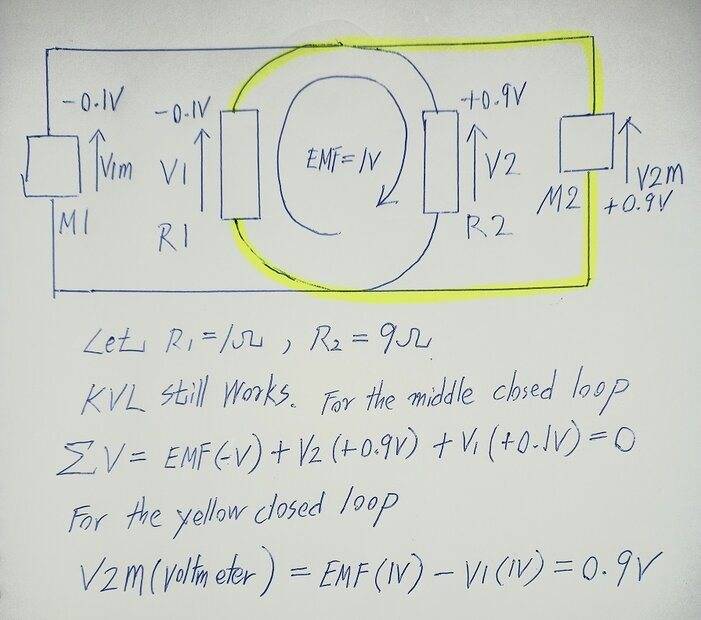 -0.1V
-0.1V
+0.9V
V1m
V1
EMF=1V
V2
V2m
+0.9V
M1
R1
R2
M2
Let R1=1Ω, R2=9Ω
KVL still works. For the middle closed loop
ΣV= EMF(-V)+V2(+0.9V)+V1(+0.1V)=0
For the yellow closed loop
V2m(voltmeter) = EMF(1V) - V1(1V) = 0.9V